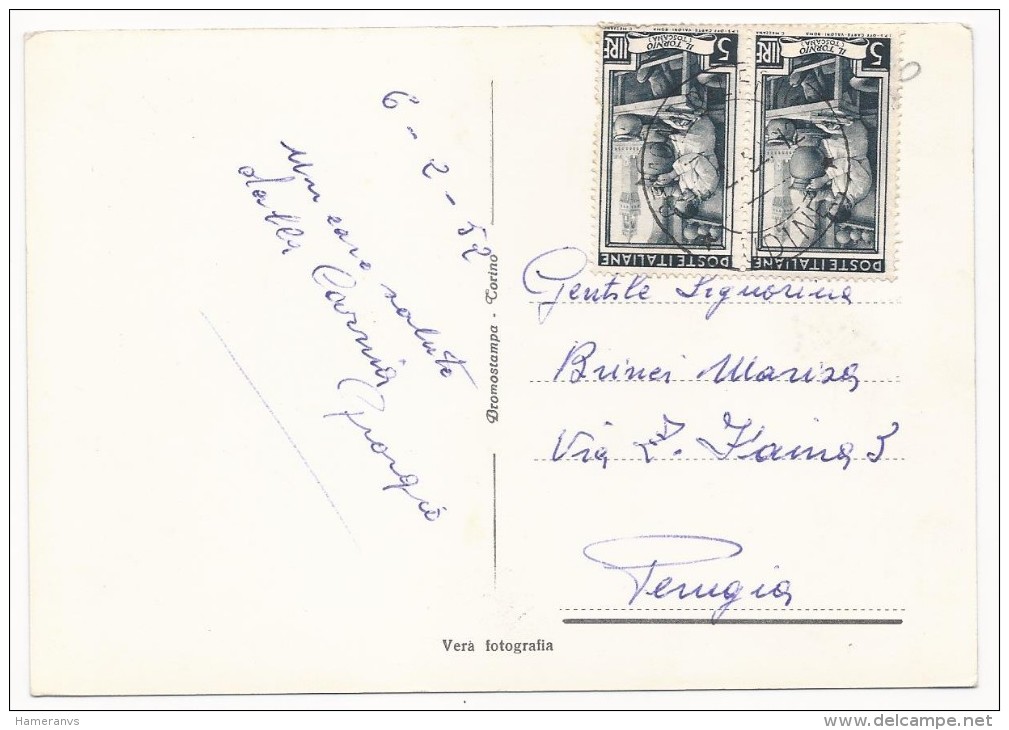 6- 2 - 52
Un caro saluto
dalla Carnia
Giorgio
Dromostampa - Torino
Gentile Signorina
Brinci Marisa
Via Z. Faina 3
Perugia
Verà fotografia
5 LIRE
IL TORNIO
(TOSCANA)
POSTE ITALIANE
5 LIRE
IL TORNIO
(TOSCANA)
POSTE ITALIANE
Hameranvs
www.delcampe.net